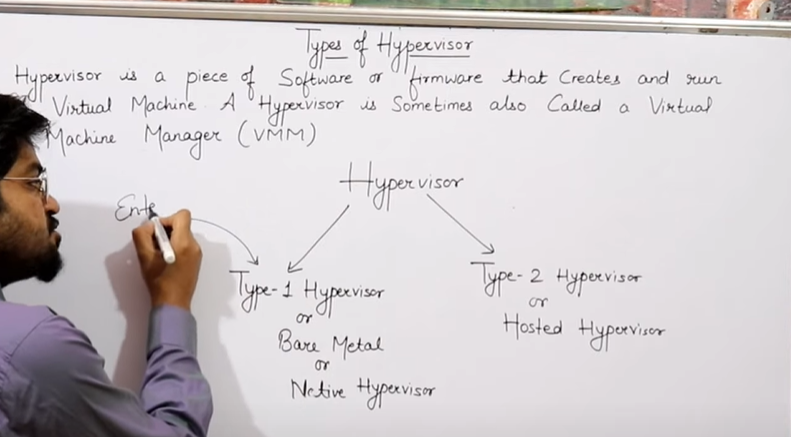 Types of Hypervisor
Hypervisor is a piece of Software or firmware that Creates and run
Virtual Machine. A Hypervisor is Sometimes also Called a Virtual
Machine Manager (VMM)
Hypervisor
Ente
Type-1 Hypervisor
or
Bare Metal
or
Native Hypervisor
Type-2 Hypervisor
or
Hosted Hypervisor